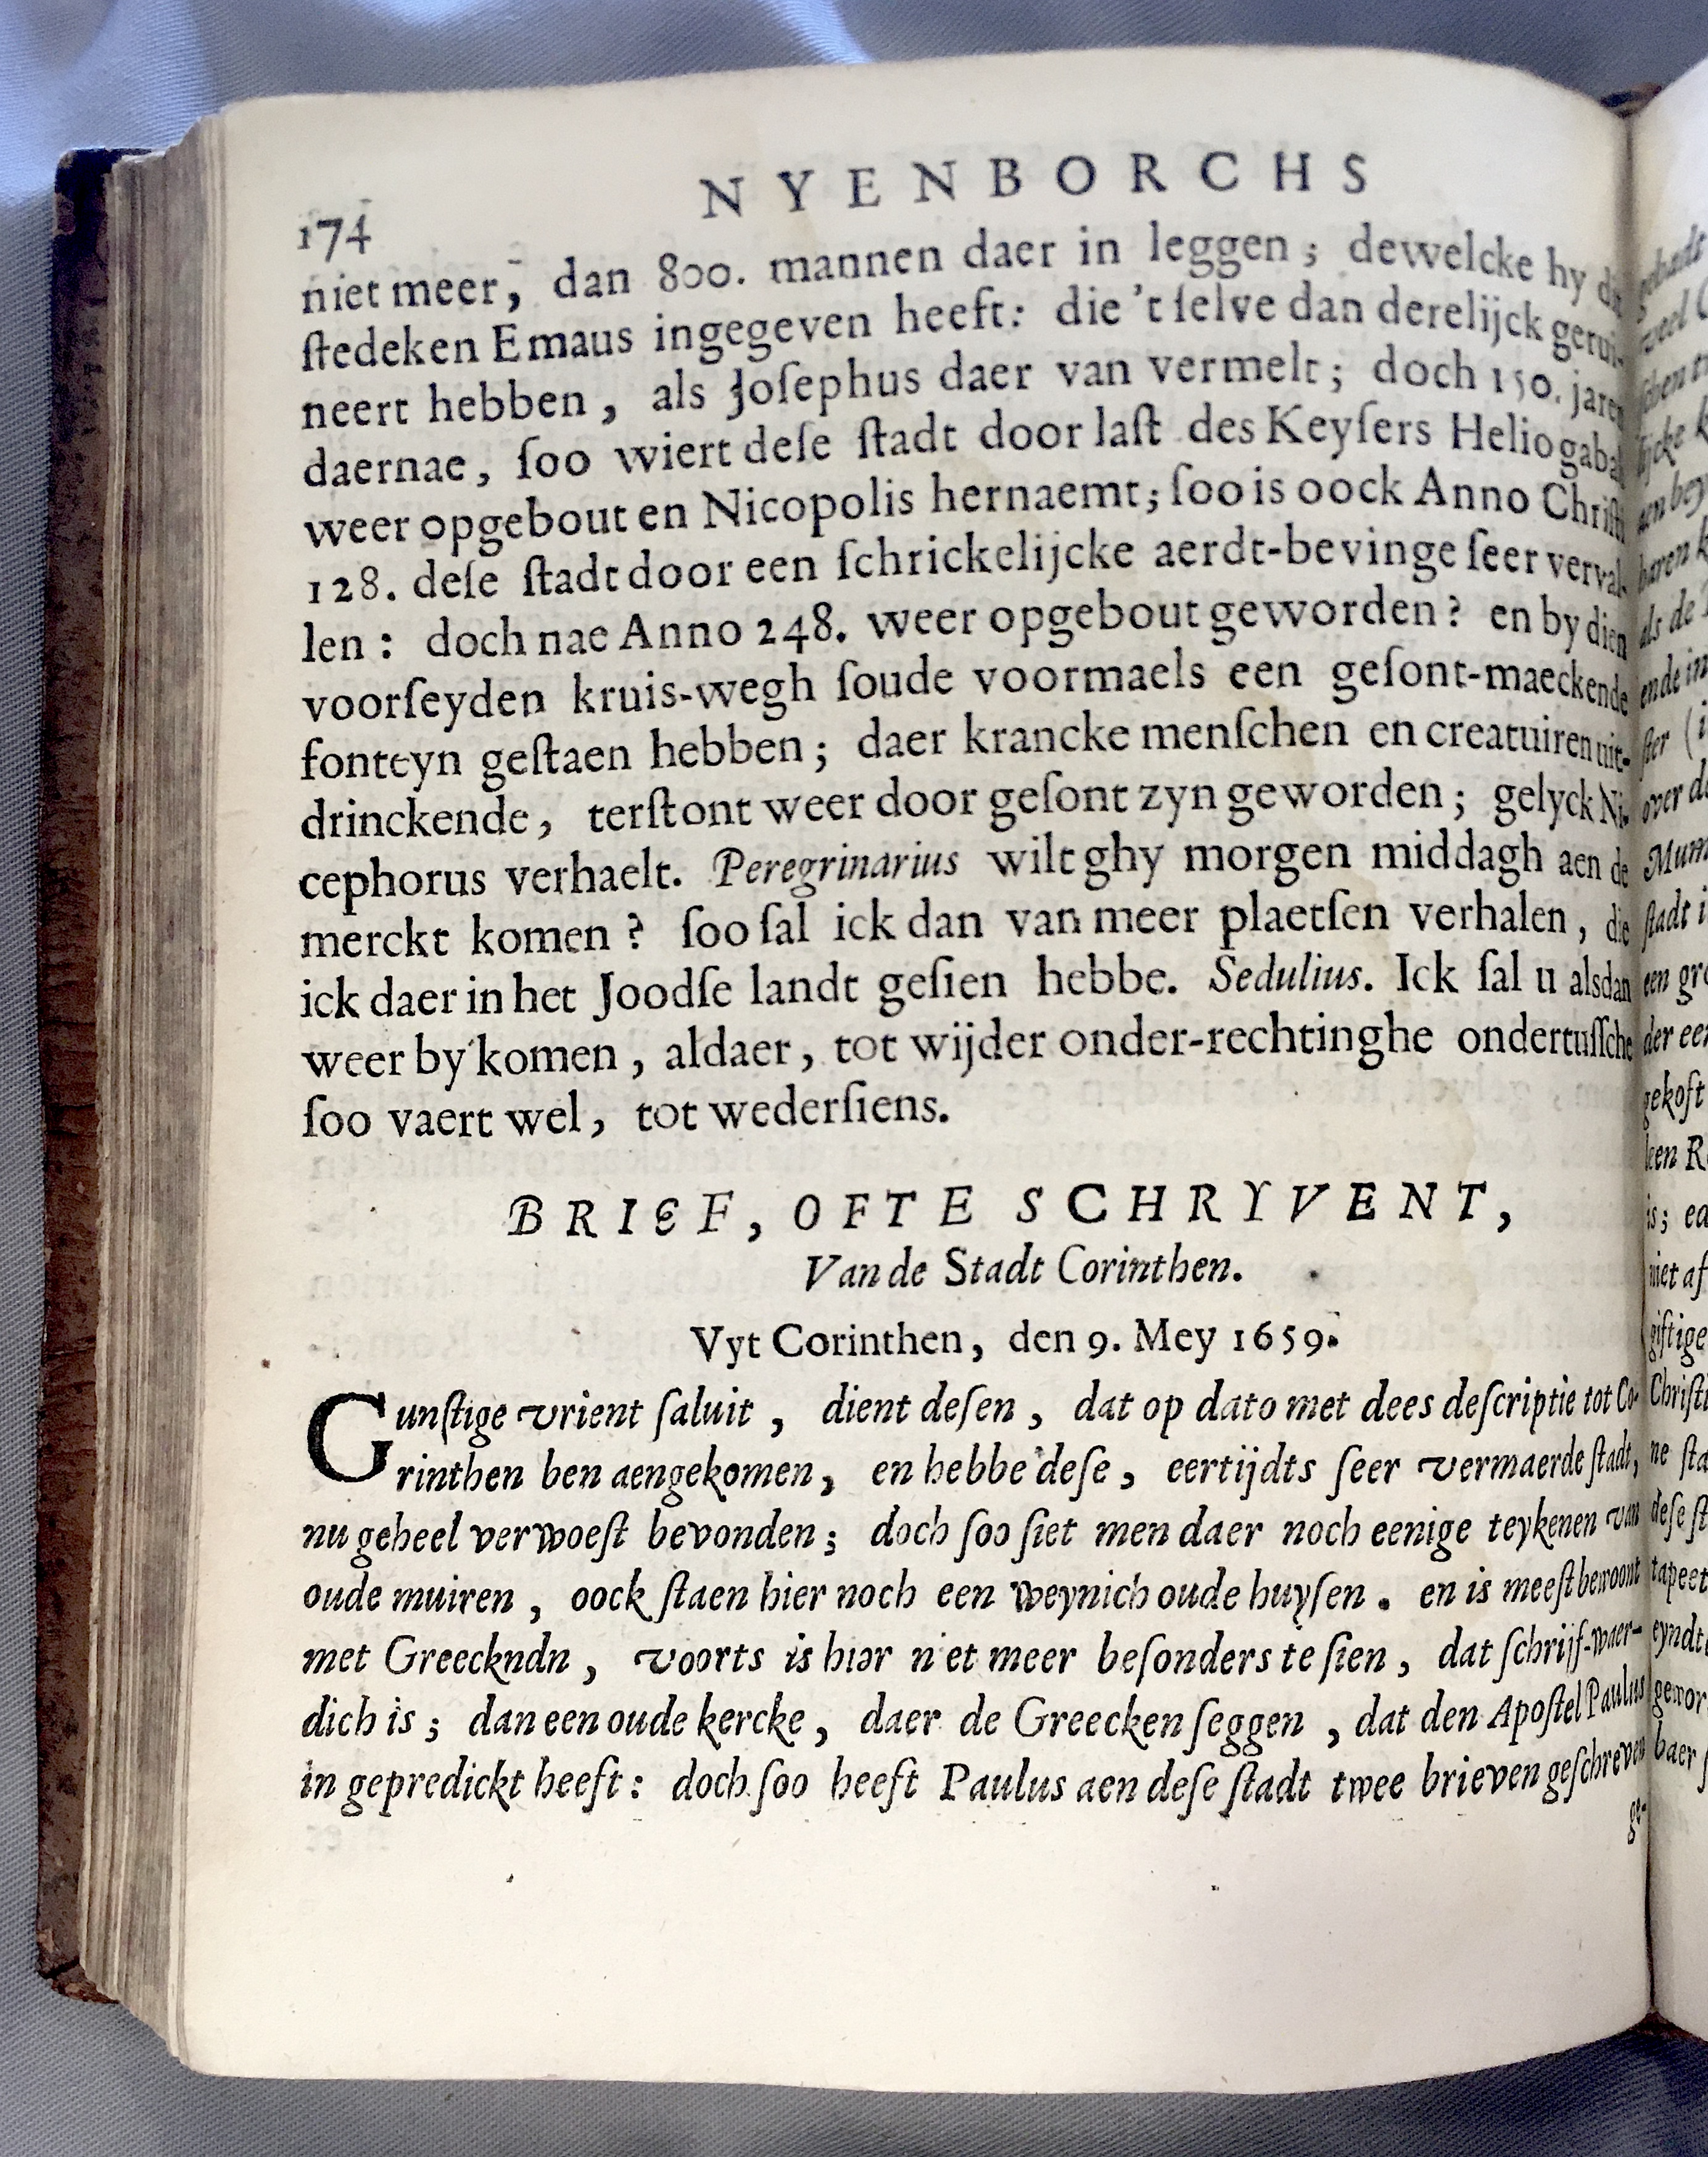 NYENBORCHS
174
niet meer, dan 800. mannen daer in leggen; dewelcke hy
ſtedeken Emaus ingegeven heeft: die 't ſelve dan derelijck gerui-
neert hebben, als Joſephus daer van vermelt; doch 150. jaren
daernae, ſoo wiert deſe ſtadt door laſt des Keyſers Heliogabal
weer opgebout en Nicopolis hernaemt; ſoo is oock Anno Chriſti
128. deſe ſtadt door een ſchrickelijcke aerdt-bevinge ſeer verval-
len: doch nae Anno 248. weer opgebout geworden? en by dien
voorſeyden kruis-wegh ſoude voormaels een geſont-maeckende
fonteyn geſtaen hebben; daer krancke menſchen en creatuiren uit-
drinckende, terſtont weer door geſont zyn geworden; gelyck Ni-
cephorus verhaelt. Peregrinarius wilt ghy morgen middagh aen de
merckt komen? ſoo ſal ick dan van meer plaetſen verhalen, die
ick daer in het Joodſe landt geſien hebbe. Sedulius. Ick ſal u alsdan
weer by komen, aldaer, tot wijder onder-rechtinghe ondertuſſche
ſoo vaert wel, tot wederſiens.
BRIEF, OFTE SCHRYVENT,
Van de Stadt Corinthen.
Vyt Corinthen, den 9. Mey 1659.
Gunſtige vrient ſaluit, dient deſen, dat op dato met dees deſcriptie tot Co-
rinthen ben aengekomen, en hebbe deſe, eertijdts ſeer vermaerde ſtadt,
nu geheel verwoeſt bevonden; doch ſoo ſiet men daer noch eenige teykenen van
oude muiren, oock ſtaen hier noch een weynich oude huyſen. en is meeſt bewoont
met Greeckndn, voorts is hiər n'et meer beſonders te ſien, dat ſchrijf-waer-
dich is; dan een oude kercke, daer de Greecken ſeggen, dat den Apoſtel Paulus
in gepredickt heeft: doch ſoo heeft Paulus aen deſe ſtadt twee brieven geſchreven
ge-